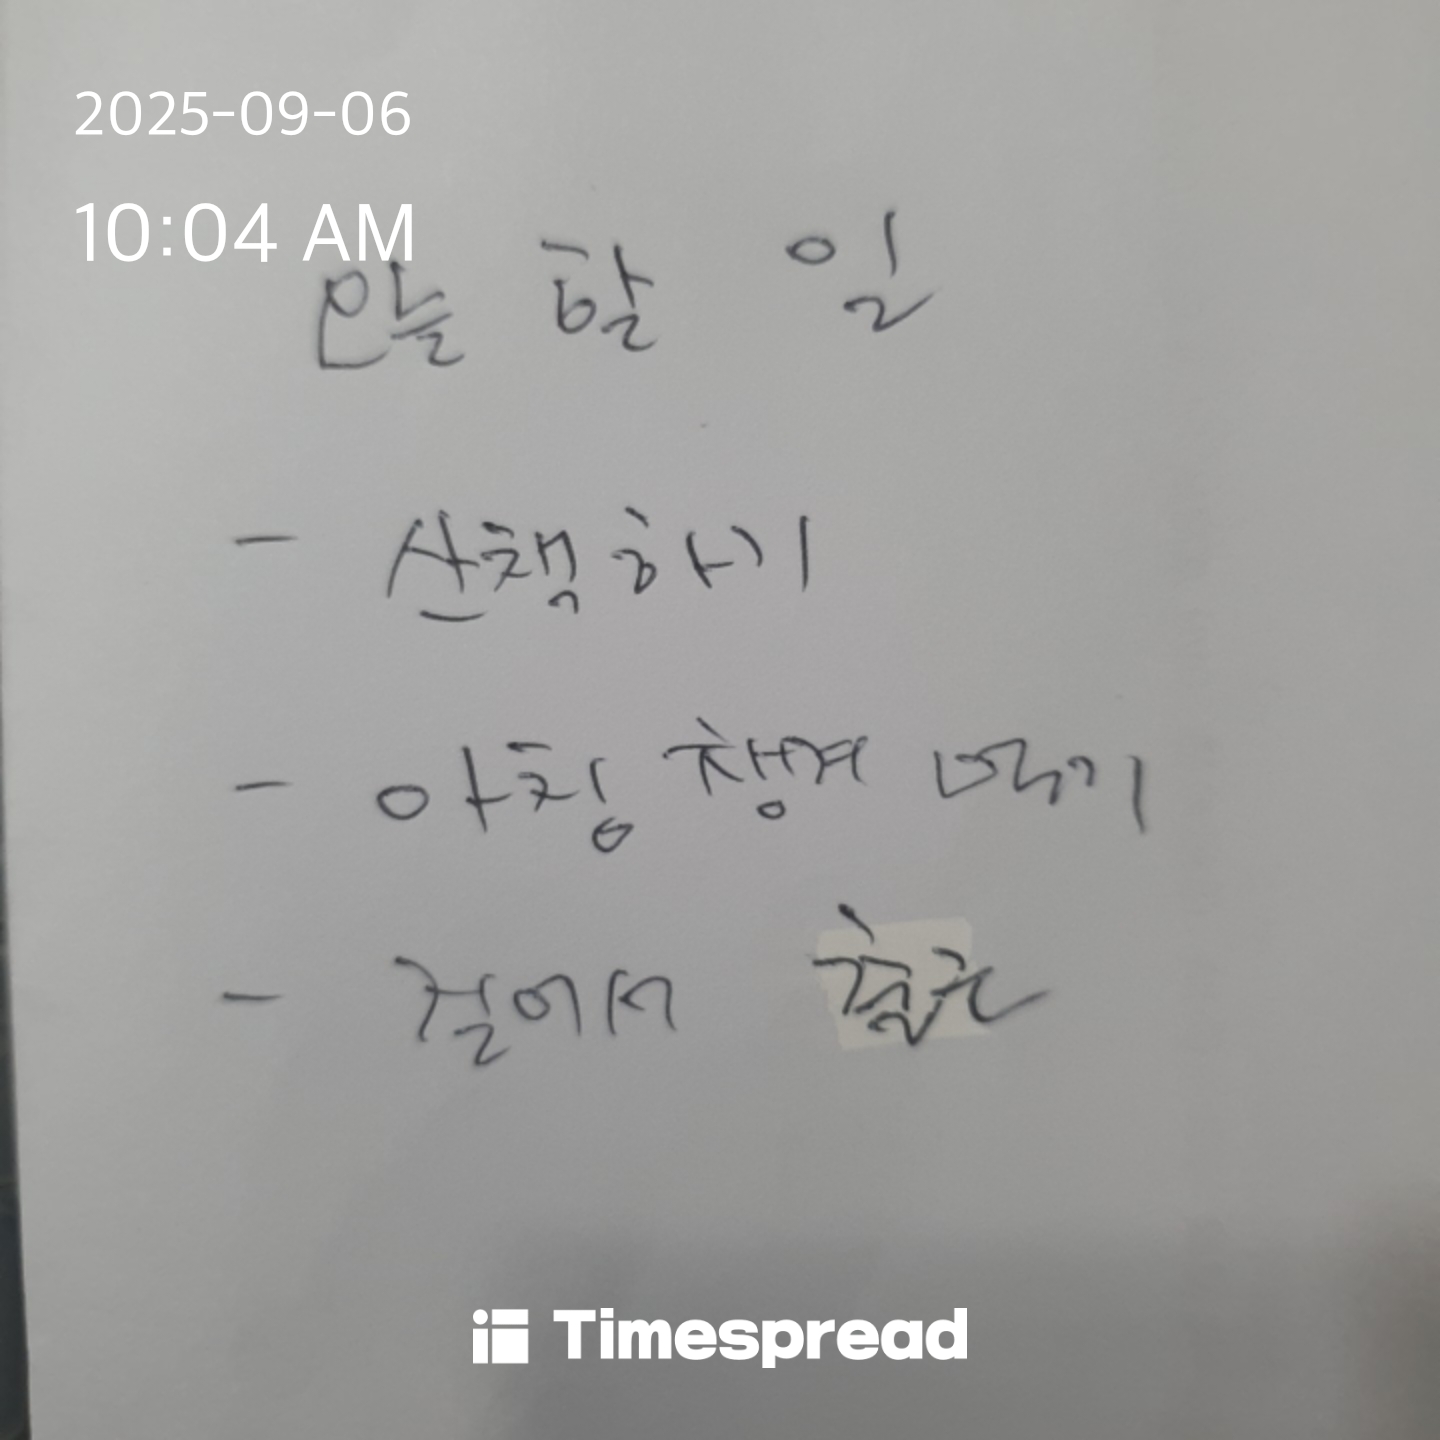 2025-09-06
10:04 AM
오늘 할 일
- 산책하기
- 아침 챙겨 먹기
- 걸어서 출근
Timespread